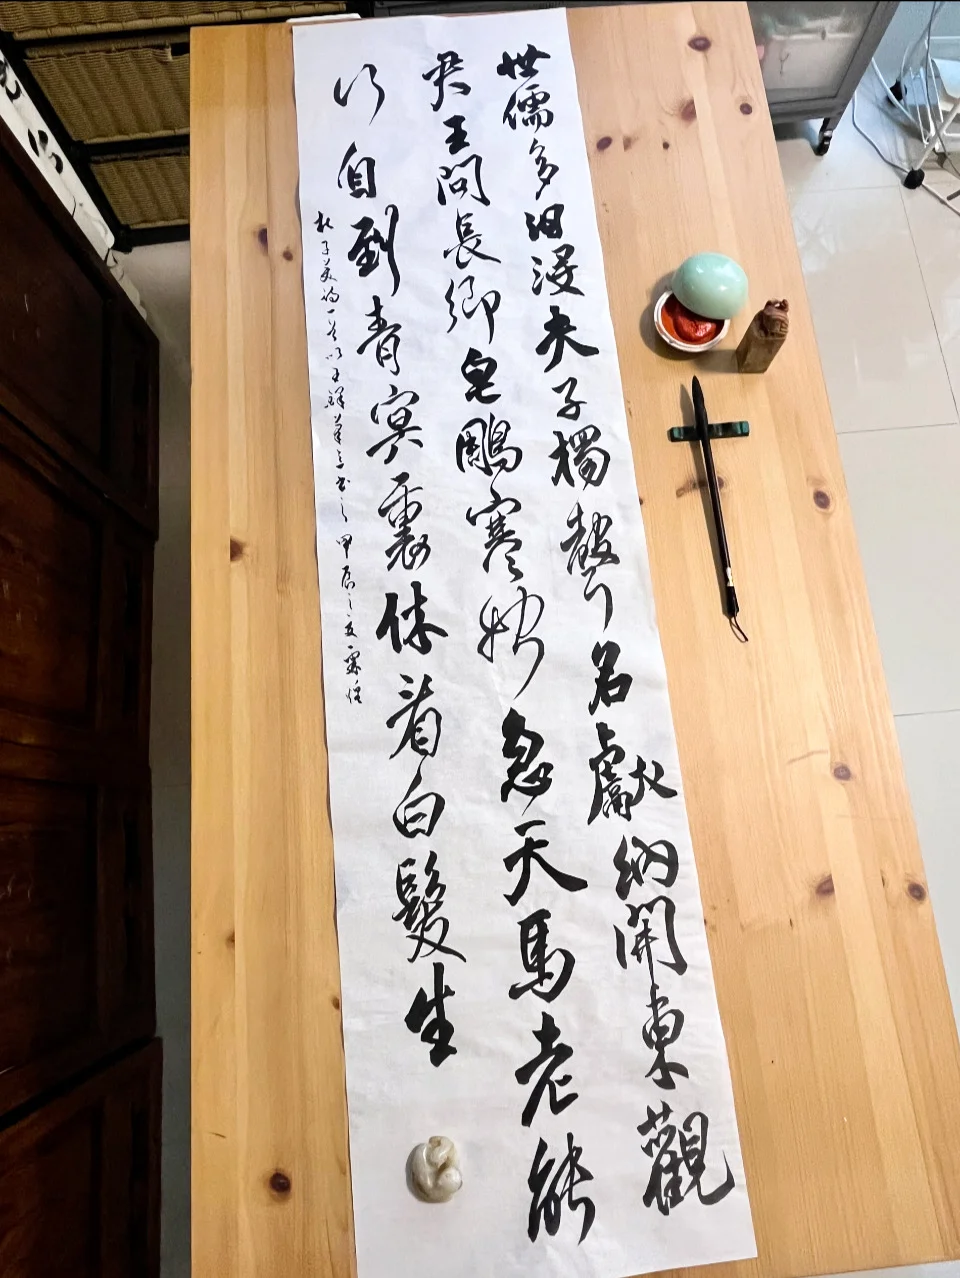 世儒多汩沒夫子獨聲名獻納開東觀
君王問長卿皂鵰寒始急天馬老能
行自到青冥裏休看白髮生
杜子美詩一首以王鐸筆意書之甲辰之夏